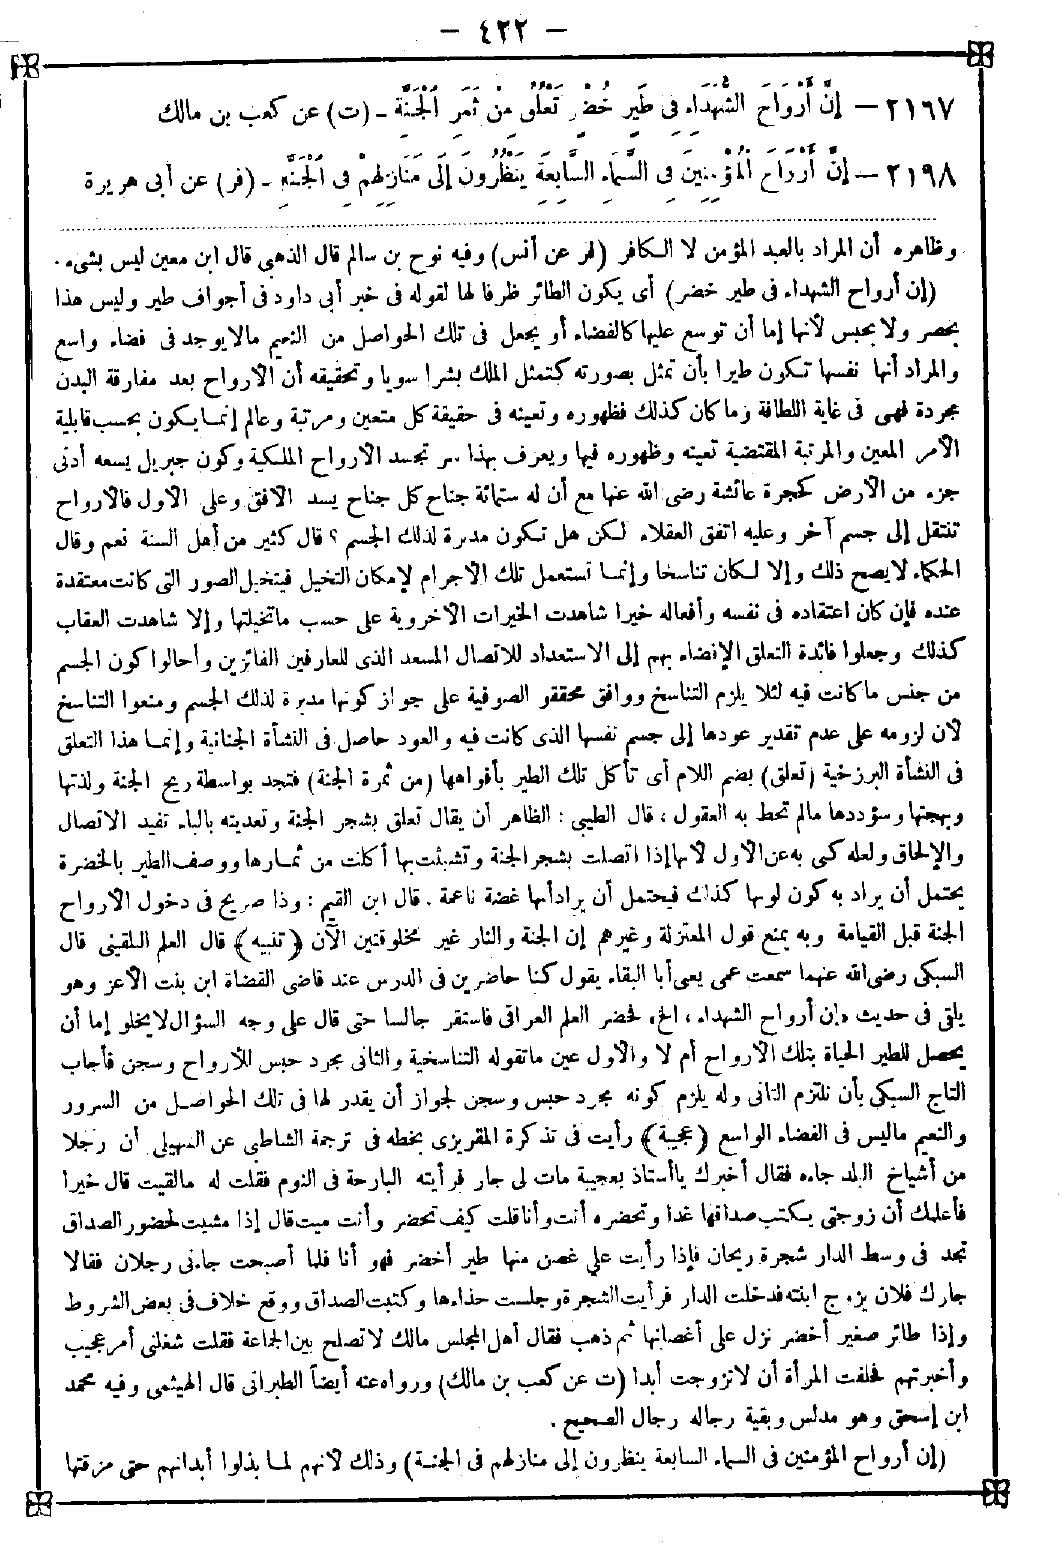 — ٤٢٢ —
٢١٦٧ — إِنَّ أَرْوَاحَ الشُّهَدَاءِ فِي طَيْرٍ خُضْرٍ تَعْلُقُ مِنْ ثَمَرِ الْجَنَّةِ - (ت) عن كعب بن مالك
٢١٩٨ — إِنَّ أَرْوَاحَ الْمُؤْمِنِينَ فِي السَّمَاءِ السَّابِعَةِ يَنْظُرُونَ إِلَى مَنَازِلِهِمْ فِي الْجَنَّةِ - (فر) عن أبي هريرة
وظاهره أن المراد بالعبد المؤمن لا الكافر (فر عن أنس) وفيه نوح بن سالم قال الذهبي قال ابن معين ليس بشيء .
(إن أرواح الشهداء فى طير خضر) أى يكون الطائر ظرفا لها لقوله فى خبر أبى داود فى أجواف طير وليس هذا
بحصر ولا بحبس لأنها إما أن توسع عليها كالفضاء أو يجعل فى تلك الحواصل من النعيم مالا يوجد فى فضاء واسع
والمراد أنها نفسها تكون طيرا بأن تمثل بصورته كتمثل الملك بشرا سويا وتحقيقه أن الأرواح بعد مفارقة البدن
مجردة فهى فى غاية اللطافة وما كان كذلك فظهوره وتعينه فى حقيقة كل متعين ومرتبة وعالم إنما يكون بحسب قابلية
الأمر المعين والمرتبة المقتضية تعينه وظهوره فيها ويعرف بهذا سر تجسد الأرواح الملكية وكون جبريل يسعه أدنى
جزء من الأرض كحجرة عائشة رضى الله عنها مع أن له ستمائة جناح كل جناح يسد الافق وعلى الاول فالأرواح
تنتقل إلى جسم آخر وعليه اتفق العقلاء لكن هل تكون مدبرة لذلك الجسم ؟ قال كثير من أهل السنة نعم وقال
الحكماء لا يصح ذلك وإلا لكان تناسخا وإنما تستعمل تلك الأجرام لإمكان التخيل فيتخيل الصور التى كانت معتقدة
عنده فإن كان اعتقاده فى نفسه وأفعاله خيرا شاهدت الخيرات الأخروية على حسب ماتخيلتها وإلا شاهدت العقاب
كذلك وجعلوا فائدة التعلق الإفضاء بهم إلى الاستعداد للاتصال المسعد الذى للعارفين الفائزين وأحالوا كون الجسم
من جنس ما كانت فيه لئلا يلزم التناسخ ووافق محققو الصوفية على جواز كونها مدبرة لذلك الجسم ومنعوا التناسخ
لأن لزومه على عدم تقدير عودها إلى جسم نفسها الذى كانت فيه والعود حاصل فى النشأة الجنانية وإنما هذا التعلق
فى النشأة البرزخية (تعلق) بضم اللام أى تأكل تلك الطير بأفواهها (من ثمرة الجنة) فتجد بواسطة ريح الجنة ولذتها
وبهجتها وسؤددها مالم تحط به العقول ، قال الطيبى : الظاهر أن يقال تعلق بشجر الجنة وتعديته بالباء تفيد الاتصال
والإلحاق ولعله كنى به عن الأول لأنها إذا اتصلت بشجر الجنة وتشبثت بها أكلت من ثمارها ووصف الطير بالخضرة
يحتمل أن يراد به كون لونها كذلك فيحتمل أن يراد أنها غضة ناعمة . قال ابن القيم : وذا صريح فى دخول الأرواح
الجنة قبل القيامة وبه يمنع قول المعتزلة وغيرهم إن الجنة والنار غير مخلوقتين الآن (تنبيه) قال العلم البلقينى قال
السبكى رضى الله عنهما سمعت عمى يعنى أبا البقاء يقول كنا حاضرين فى الدرس عند قاضى القضاة ابن بنت الأعز وهو
يلقى فى حديث «إن أرواح الشهداء ، الخ» فحضر العلم العراقى فاستقر جالسا حتى قال على وجه السؤال لا يخلو إما أن
يحصل للطير الحياة بتلك الأرواح أم لا والأول عين ماتقوله التناسخية والثانى مجرد حبس للأرواح وسجن فأجاب
التاج السبكى بأن نلتزم الثانى وله يلزم كونه مجرد حبس وسجن لجواز أن يقدر لها فى تلك الحواصل من السرور
والنعيم ماليس فى الفضاء الواسع (عجيبة) رأيت فى تذكرة المقريزى بخطه فى ترجمة الشاطبى عن السهيلى أن رجلا
من أشياخ البلد جاءه فقال أخبرك يا أستاذ بعجيبة مات لى جار فرأيته البارحة فى النوم فقلت له مالقيت قال خيرا
فأعلمك أن زوجتى يكتب صداقها غدا وتحضره أنت وأنا قلت كيف تحضر وأنت ميت قال إذا مشيت لحضور الصداق
تجد فى وسط الدار شجرة ريحان فإذا رأيت على غصن منها طير أخضر فهو أنا فلما أصبحت جاءنى رجلان فقالا
جارك فلان يزوج ابنته فدخلت الدار فرأيت الشجرة وجلست حذاءها وكتبت الصداق ووقع خلاف فى بعض الشروط
وإذا طائر صغير أخضر نزل على أغصانها ثم ذهب فقال أهل المجلس مالك لا تصلح بين الجماعة فقلت شغلنى أمر عجيب
وأخبرتهم فحلفت المرأة أن لا تزوجت أبدا (ت عن كعب بن مالك) ورواه عنه أيضاً الطبرانى قال الهيثمى وفيه محمد
ابن إسحق وهو مدلس وبقية رجاله رجال الصحيح .
(إن أرواح المؤمنين فى السماء السابعة ينظرون إلى منازلهم فى الجنة) وذلك لأنهم لما بذلوا أبدانهم حتى مزقتها